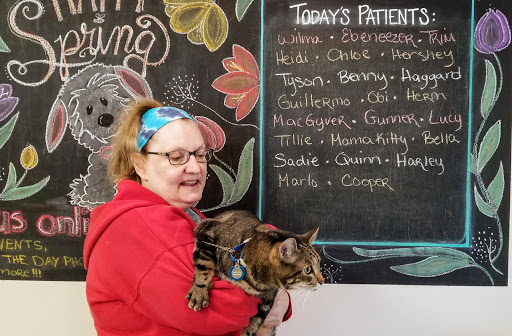 HAPPY
Spring
TODAY'S PATIENTS:
Wilma · Ebeneezer · Trin
Heidi · Chloe · Hershey
Tyson · Benny · Haggard
Guillermo · Obi · Herm
MacGyver · Gunner · Lucy
Tillie · MamaKitty · Bella
Sadie · Quinn · Harley
Marlo · Cooper
us onli
VENTS,
THE DAY PH
more!!!